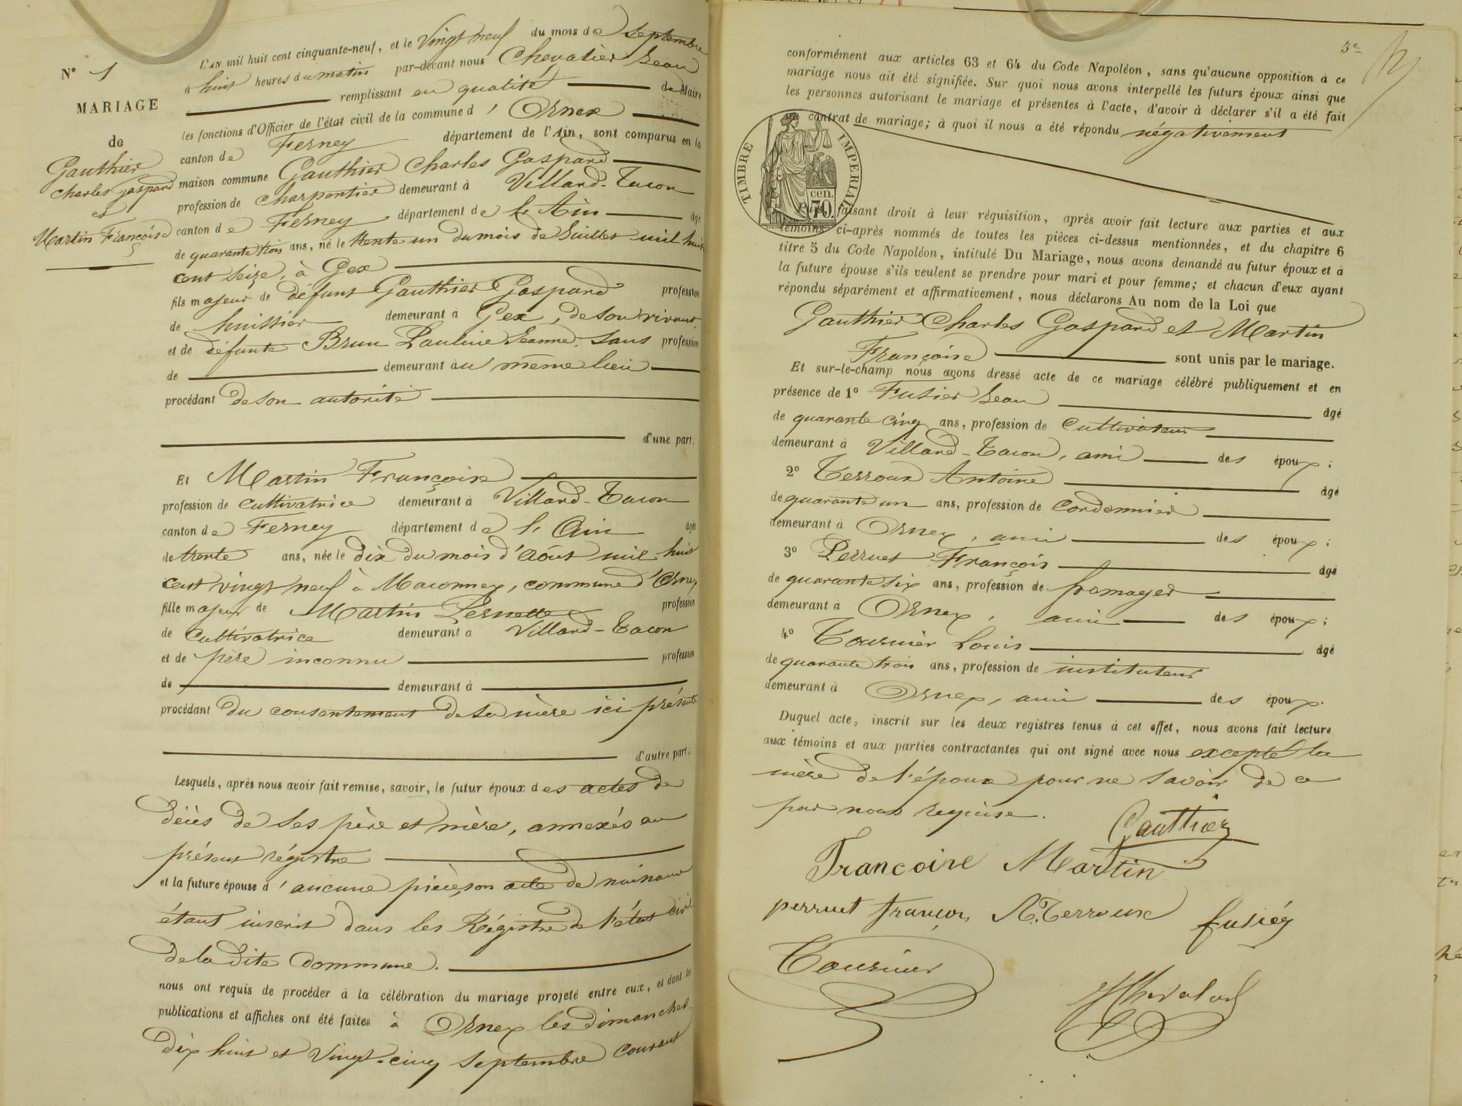 N° 1
MARIAGE
de
Gauthier
Charles gaspard
et
Martin Françoise
L'an mil huit cent cinquante-neuf, et le Vingt neuf du mois de Septembre
à huit heures du matin par-devant nous Chevalier Jean
remplissant en qualité de Maire
les fonctions d'Officier de l'état civil de la commune d' Ornex
canton de Ferney département de l'Ain, sont comparus en la
maison commune Gauthier Charles Gaspard
profession de Charpentier demeurant à Villard-Tacon
canton de Ferney département de l'Ain âgé
de quarante trois ans, né le trente un du mois de Juillet mil huit
cent seize, à Gex
fils majeur de défunt Gauthier Gaspard profession
de huissier demeurant à Gex, de son vivant
et de défunte Brun Pauline Jeanne. Sans profession
de demeurant au même lieu
procédant de son autorité
d'une part.
Et Martin Françoise
profession de cultivatrice demeurant à Villard-Tacon
canton de Ferney département de l'Ain âgée
de trente ans, née le dix du mois d'Août mil huit
cent vingt neuf à Maconnex, commune d'Ornex
fille majeure de Martin Pernette profession
de Cultivatrice demeurant à Villard-Tacon
et de père inconnu profession
de demeurant à
procédant du consentement de sa mère ici présente
d'autre part.
Lesquels, après nous avoir fait remise, savoir, le futur époux des actes de
décès de ses père et mère, annexés au
présent régistre
et la future épouse d'aucune pièce, son acte de naissance
étant inscrit dans les Régistre de l'état civil
de la dite Commune.
nous ont requis de procéder à la célébration du mariage projeté entre eux, et dont les
publications et affiches ont été faites à Ornex les dimanches
dix huit et Vingt-cinq Septembre courant
5e
conformément aux articles 63 et 64 du Code Napoléon, sans qu'aucune opposition à ce
mariage nous ait été signifiée. Sur quoi nous avons interpellé les futurs époux ainsi que
les personnes autorisant le mariage et présentes à l'acte, d'avoir à déclarer s'il a été fait
contrat de mariage; à quoi il nous a été répondu négativement
TIMBRE IMPERIAL
70 cen.
faisant droit à leur réquisition, après avoir fait lecture aux parties et aux
témoins ci-après nommés de toutes les pièces ci-dessus mentionnées, et du chapitre 6
titre 5 du Code Napoléon, intitulé Du Mariage, nous avons demandé au futur époux et à
la future épouse s'ils veulent se prendre pour mari et pour femme; et chacun d'eux ayant
répondu séparément et affirmativement, nous déclarons Au nom de la Loi que
Gauthier Charles Gaspard et Martin
Françoise sont unis par le mariage.
Et sur-le-champ nous avons dressé acte de ce mariage célébré publiquement et en
présence de 1° Fusier Jean âgé
de quarante cinq ans, profession de Cultivateur
demeurant à Villard-Tacon, ami des époux;
2° Terroux Antoine âgé
de quarante un ans, profession de Cordonnier
demeurant à Ornex, ami des époux;
3° Perruet François âgé
de quarante six ans, profession de fromager
demeurant à Ornex, ami des époux;
4° Tournier Louis âgé
de quarante trois ans, profession de instituteur
demeurant à Ornex, ami des époux.
Duquel acte, inscrit sur les deux registres tenus à cet effet, nous avons fait lecture
aux témoins et aux parties contractantes qui ont signé avec nous excepté la
mère de l'époux pour ne savoir de ce
par nous requise.
Gauthier
Francoise Martin
perruet françois A. Terroux fusiég
Tournier
J Chevalier